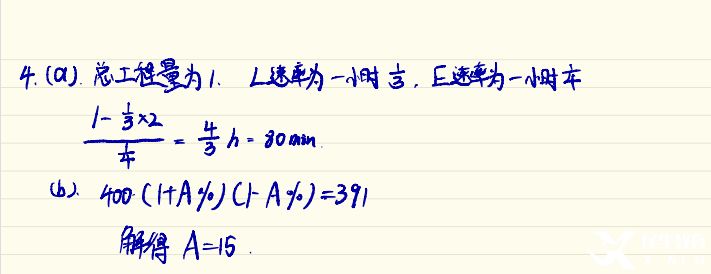 4.(a). 总工程量为1. L速率为一小时 1/3, E速率为一小时 1/4
(1 - 1/3 × 2) / (1/4) = 4/3 h = 80min.
(b). 400 (1+A%)(1-A%)=391
解得 A=15.